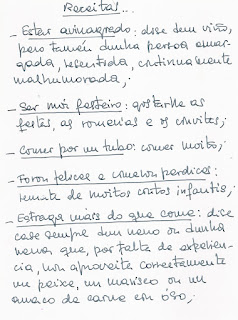 Receitas...
- Estar avinagrado: dise dun viño,
pero tamén dunha persoa amar-
gada, resentida, continuamente
malhumorada,.
- Ser moi festeiro: gostarlle as
festas, as romerías e os convites,.
- Comer por un tubo: comer moito,.
- Foron felices e comeron perdices:
remate de moitos contos infantís,.
- Estraga mais do que come: dise
case sempre dun neno ou dunha
nena que, por falta de experien-
cia, non aproveita correctamente
un peixe, un marisco ou un
anaco de carne con óso,.